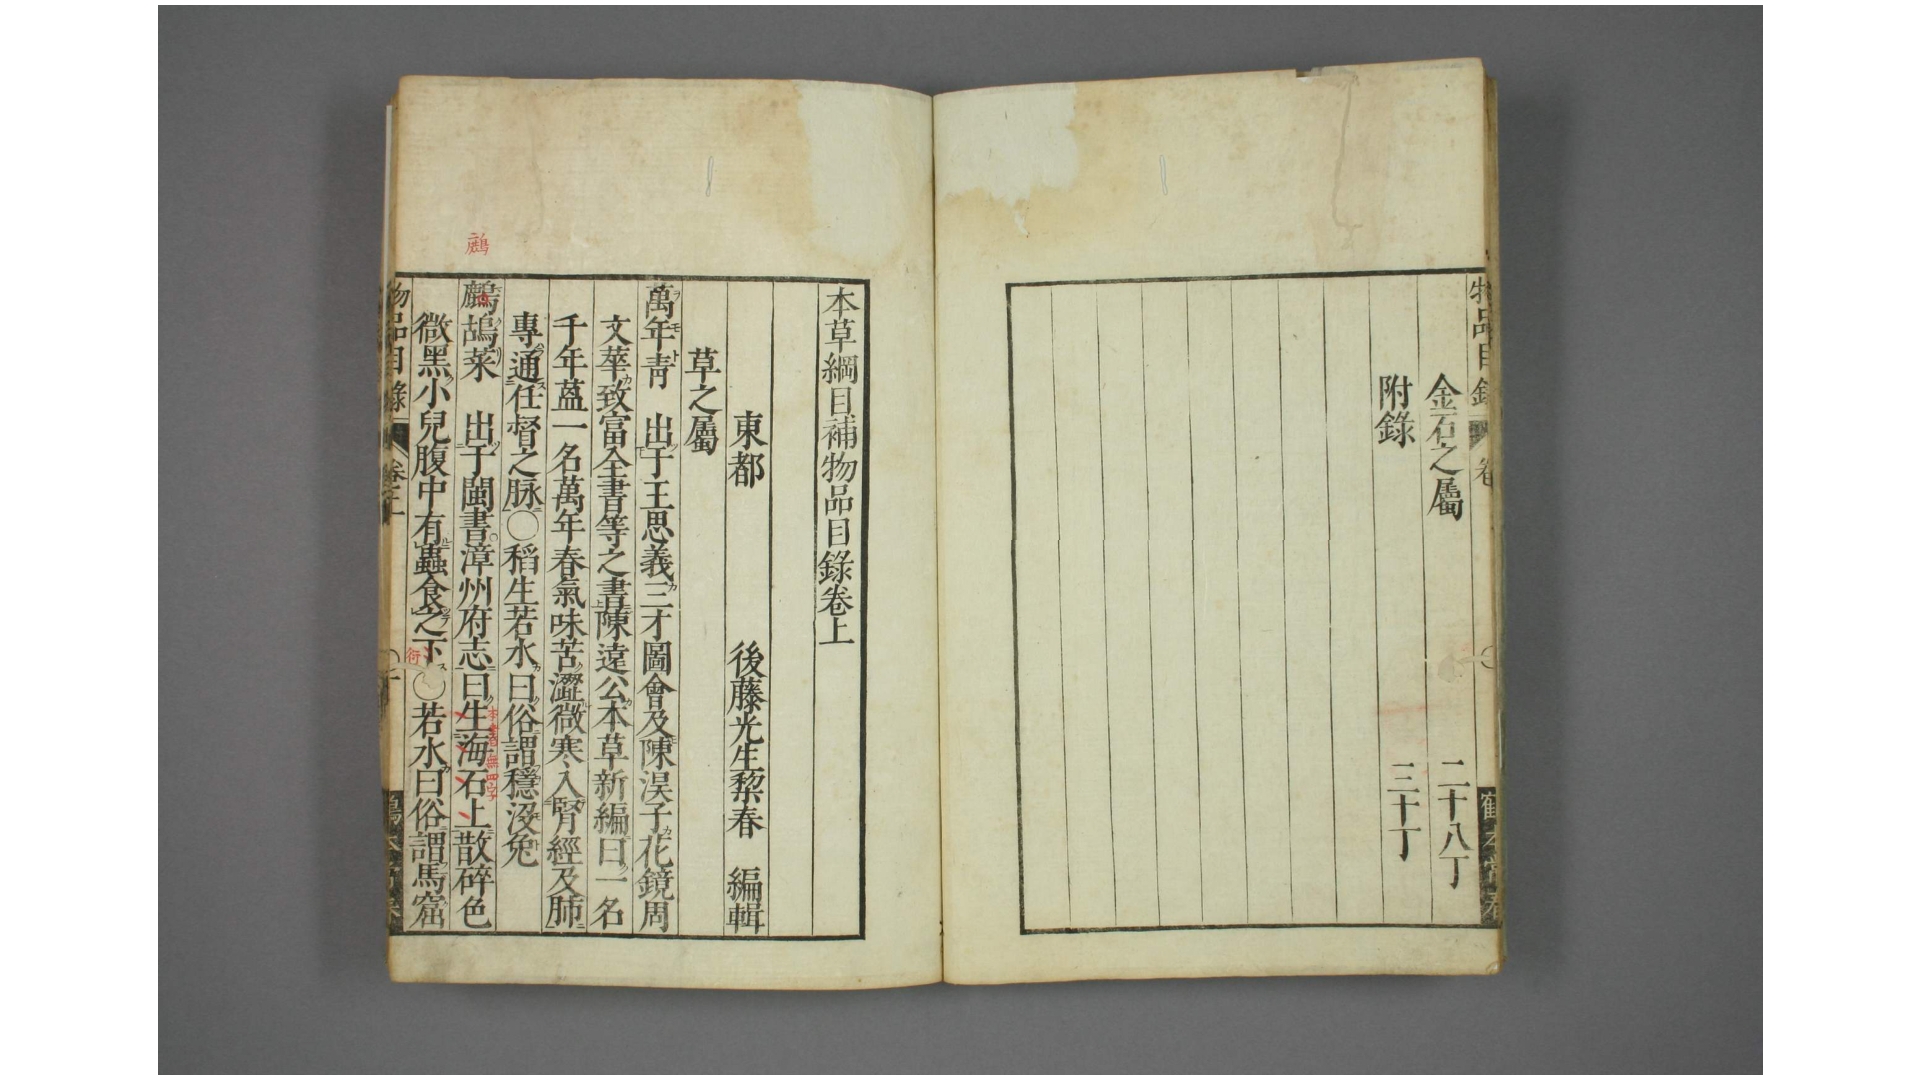 物品目錄 卷
金石之屬 二十八丁
附錄 三十丁
本草綱目補物品目錄卷上
東都 後藤光生黎春 編輯
草之屬
萬年靑 出于王思義三才圖會及陳淏子花鏡周
文華致富全書等之書陳遠公本草新編曰一名
千年蒀一名萬年春氣味苦澀微寒入腎經及肺
專通任督之脉○稻生若水曰俗謂穩沒兔
鷓鴣菜 出于閩書漳州府志曰生海石上散碎色
微黑小兒腹中有蟲食之下○若水曰俗謂馬窟
物品目錄 卷上
鷓
本書無四字
衍